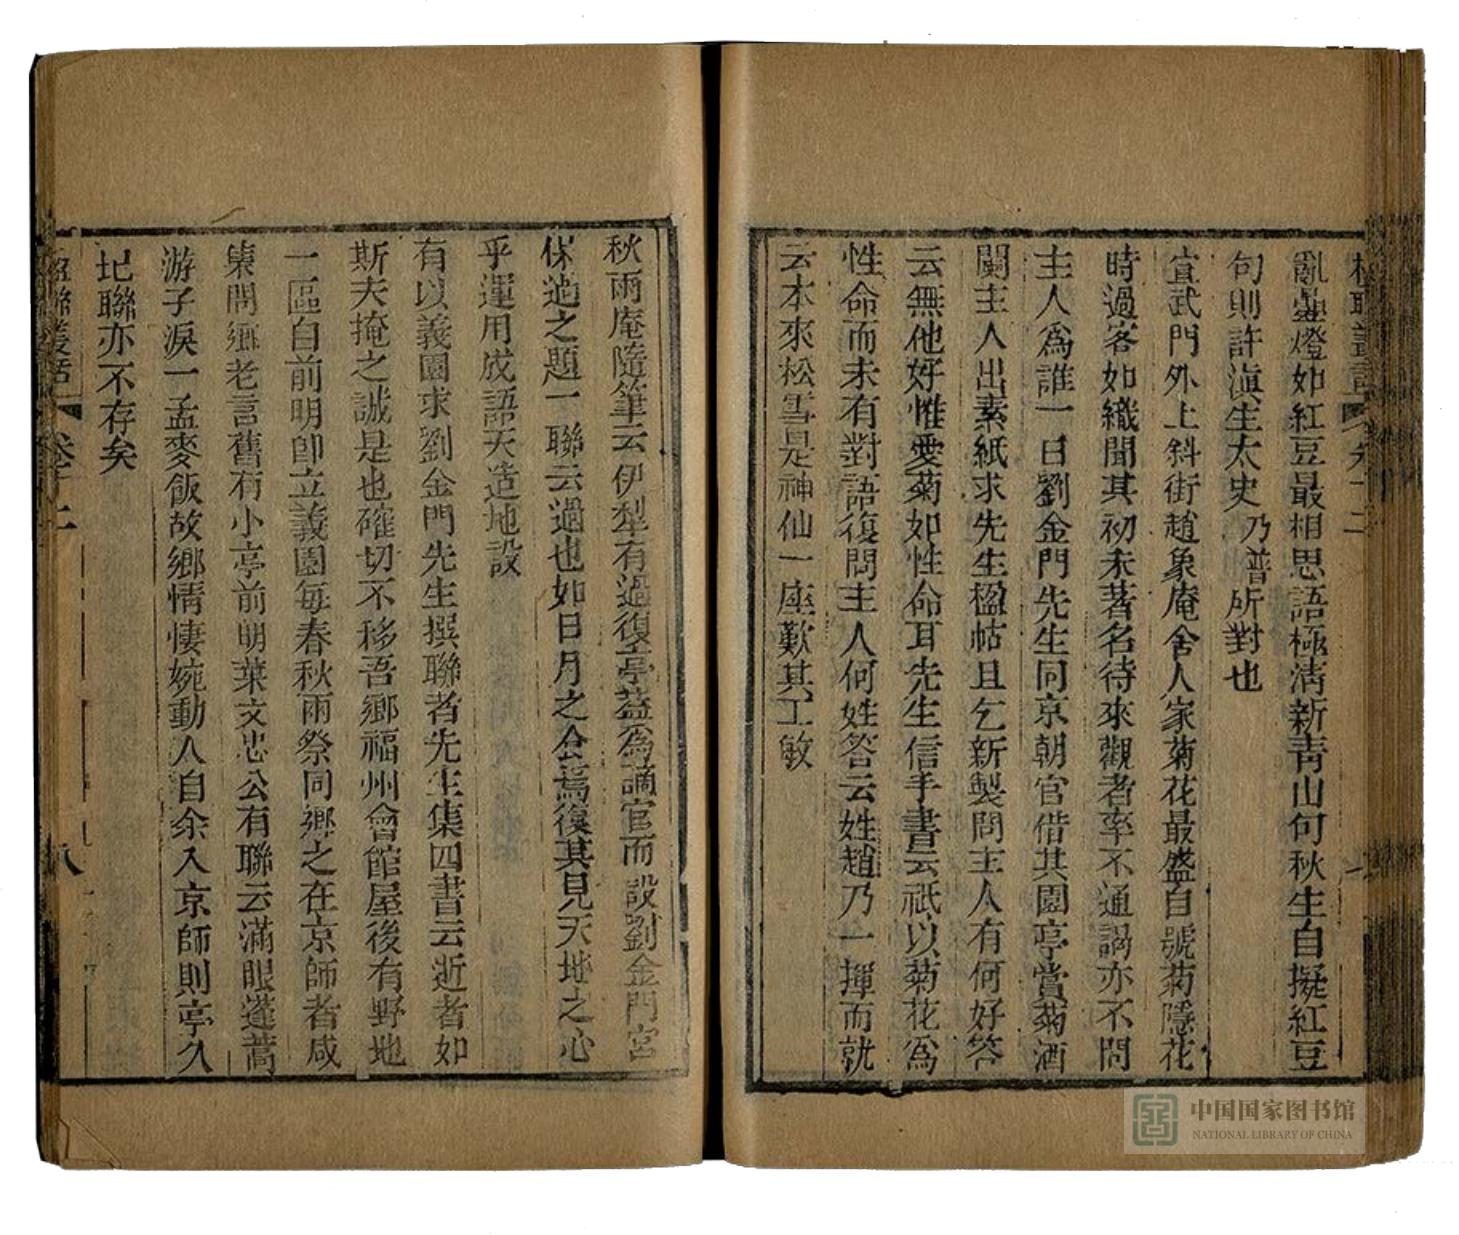 楹聯叢話 卷十二
亂蠱燈如紅豆最相思語極淸新靑山何秋生自擬紅豆
句則許滇生太史乃普所對也
宣武門外上斜街趙象庵舍人家菊花最盛自號菊隱花
時過客如織聞其初未著名待來觀者率不通謁亦不問
主人爲誰一日劉金門先生同京朝官借其園亭賞菊酒
闌主人出素紙求先生楹帖且乞新製問主人有何好答
云無他好惟愛菊如性命耳先生信手書云祇以菊花爲
性命而未有對語復問主人何姓答云姓趙乃一揮而就
云本來松雪是神仙一座歎其工敏
秋雨庵隨筆云伊犁有過復亭蓋爲謫官而設劉金門宮
保過之題一聯云過也如日月之食焉復其見天地之心
乎運用成語天造地設
有以義園求劉金門先生撰聯者先生集四書云逝者如
斯夫掩之誠是也確切不移吾鄉福州會館屋後有野地
一區自前明卽立義園每春秋雨祭同鄉之在京師者咸
集閒鄉老言舊有小亭前明葉文忠公有聯云滿眼蓬蒿
游子淚一盂麥飯故鄉情悽婉動人自余入京師則亭久
圮聯亦不存矣
楹聯叢話 卷十二 八
中国国家图书馆
NATIONAL LIBRARY OF CHINA